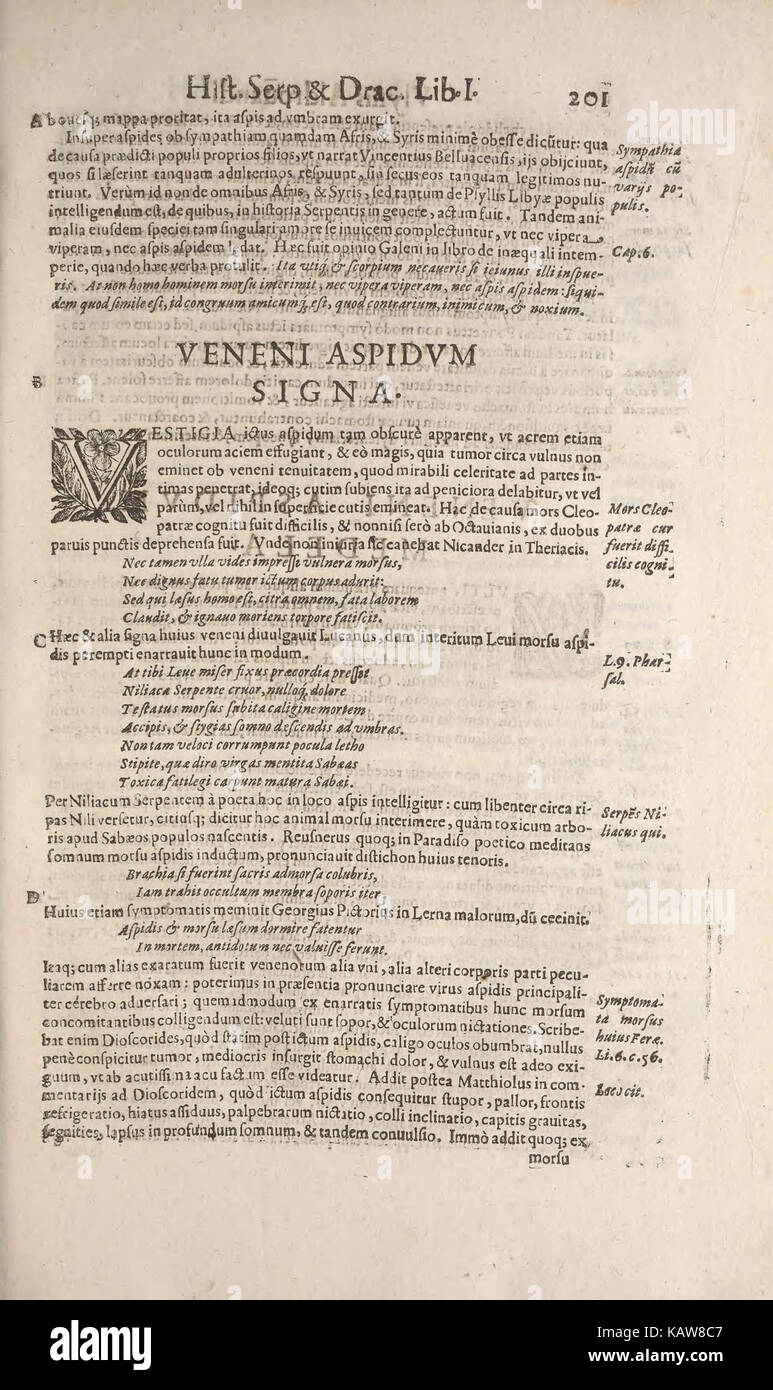 Hist. Serp & Drac. Lib. I. 201
A bouesq; mappa proritat, ita aspis ad vmbram exurgit.
Insuper aspides ob sympathiam quamdam Afris, & Syris minimè obesse dicūtur: qua
de causa prædicti populi proprios filios, vt narrat Vincentius Belluacensis, ijs obijciunt,
quos si læserint tanquam adulterinos respuunt, sin secus eos tanquam legitimos nu-
triunt. Verùm id non de omnibus Afris, & Syris, sed tantum de Psyllis Libyæ populis
intelligendum est, de quibus, in historia Serpentis in genere, actum fuit. Tandem ani-
malia eiusdem speciei tam singulari amore se inuicem complectuntur, vt nec vipera
viperam, nec aspis aspidem lædat. Hæc fuit opinio Galeni in libro de inæquali intem-
perie, quando hæc verba protulit. Ita vtiq; & scorpium necaueris si ieiunus illi inspue-
ris. At non homo hominem morsu interimit, nec vipera viperam, nec aspis aspidem: siqui-
dem quod simile est, id congruum amicumq; est, quod contrarium, inimicum, & noxium.
Sympathia
aspidū cū
varijs po-
pulis.
Cap. 6.
VENENI ASPIDVM
B
SIGNA.
VESTIGIA ictus aspidum tam obscurè apparent, vt acrem etiam
oculorum aciem effugiant, & eò magis, quia tumor circa vulnus non
eminet ob veneni tenuitatem, quod mirabili celeritate ad partes in-
timas penetrat, ideoq; cutim subiens ita ad peniciora delabitur, vt vel
parùm, vel nihil in superficie cutis emineat. Hac de causa mors Cleo-
patræ cognitu fuit difficilis, & nonnisi serò ab Octauianis, ex duobus
paruis punctis deprehensa fuit. Vnde non iniuria sic canebat Nicander in Theriacis.
Mors Cleo-
patræ cur
fuerit diffi-
cilis cogni-
tu.
Nec tamen vlla vides impressi vulnera morsus,
Nec dignus fatu tumor ictum corpus adurit:
Sed qui læsus homo est, citra omnem, fata laborem
Claudit, & ignauo moriens torpore fatiscit.
C Hæc & alia signa huius veneni diuulgauit Lucanus, dum interitum Leui morsu aspi-
dis perempti enarrauit hunc in modum.
L. 9. Phar-
sal.
At tibi Leue miser fixus præcordia presset
Niliaca Serpente cruor, nulloq; dolore
Testatus morsus subita caligine mortem
Accipis, & stygias somno descendis ad vmbras.
Non tam veloci corrumpunt pocula letho
Stipite, quæ diro virgas mentita Sabæas
Toxica fatilegi carpunt matura Sabæi.
Per Niliacum Serpentem à poeta hoc in loco aspis intelligitur: cum libenter circa ri-
pas Nili versetur, citiusq; dicitur hoc animal morsu interimere, quàm toxicum arbo-
ris apud Sabæos populos nascentis. Reusnerus quoq; in Paradiso poetico meditans
somnum morsu aspidis inductum, pronunciauit distichon huius tenoris.
Serpēs Ni-
liacus qui.
Brachia si fuerint sacris admorsa colubris,
D Iam trahit occultum membra soporis iter
Huius etiam symptomatis meminit Georgius Pictorius in Lerna malorum, dū cecinit.
Aspidis & morsu læsum dormire fatentur
In mortem, antidotum nec valuisse ferunt.
Itaq; cum alias exaratum fuerit venenorum alia vni, alia alteri corporis parti pecu-
liarem afferre noxam: poterimus in præsentia pronunciare virus aspidis principali-
ter cérebro aduersari; quemadmodum ex enarratis symptomatibus hunc morsum
concomitantibus colligendum est: veluti sunt sopor, & oculorum nictationes. Scribe-
bat enim Dioscorides, quòd statim post ictum aspidis, caligo oculos obumbrat, nullus
penè conspicitur tumor, mediocris insurgit stomachi dolor, & vulnus est adeo exi-
guum, vt ab acutissima acu factum esse videatur. Addit postea Matthiolus in com-
mentarijs ad Dioscoridem, quòd ictum aspidis consequitur stupor, pallor, frontis
refrigeratio, hiatus assiduus, palpebrarum nictatio, colli inclinatio, capitis grauitas,
segnities, lapsus in profundum somnum, & tandem conuulsio. Immò addit quoq; ex
morsu
Symptoma-
ta morsus
huius Feræ.
Li. 6. c. 56.
Loco cit.
alamy
Image ID: KAW8C7
www.alamy.com